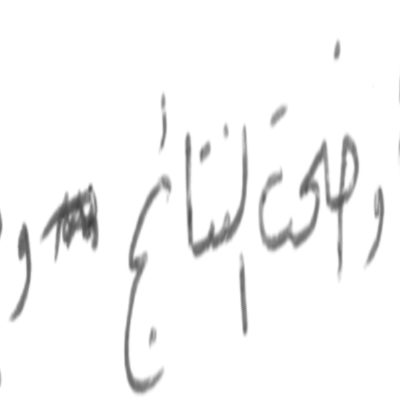 أوضحت النتائج و